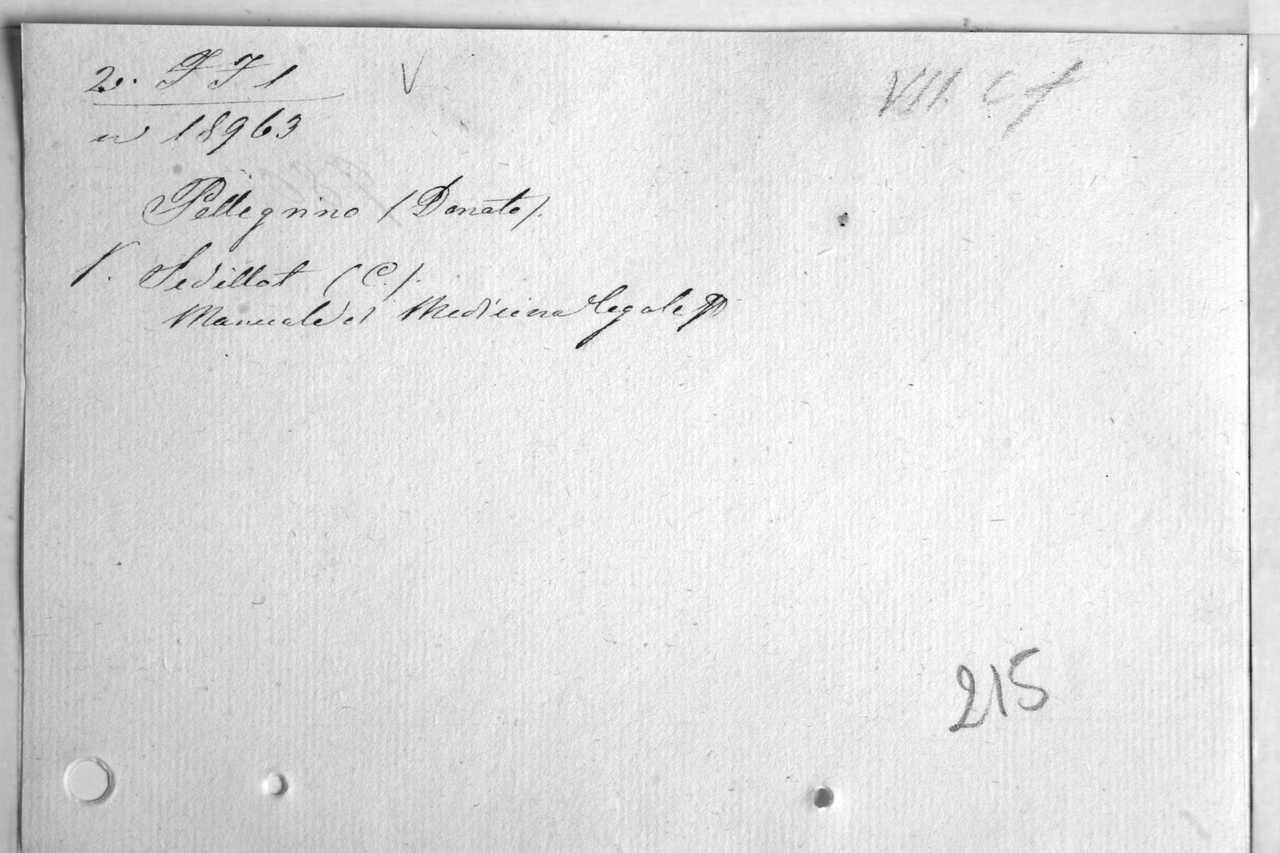 2. F F 1 V
VII. C f
n 18963
Pellegrino (Donato).
V. Sedillot (C.).
Manuale di Medicina legale
215